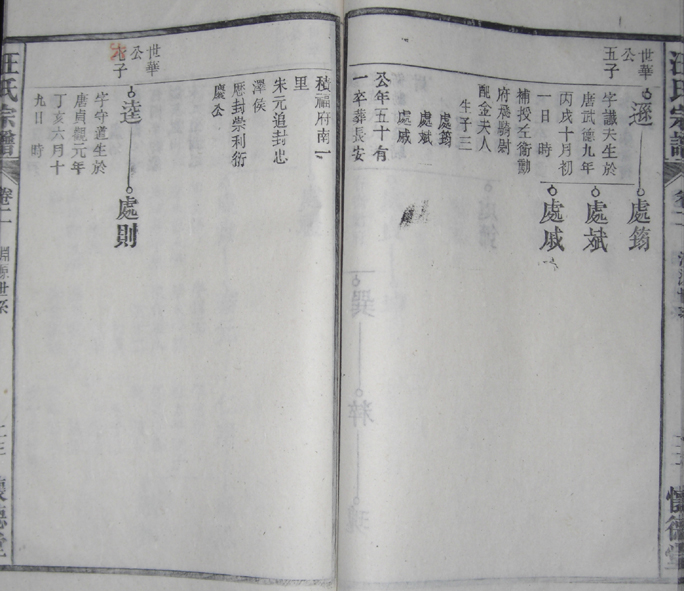 汪氏宗譜
懷德堂
世華
公
五子
遜
處筠
處斌
處戚
字議夫生於
唐武德九年
丙戌十月初
一日 時
補授左衛勳
府飛騎尉
配金夫人
生子三
處筠
處斌
處戚
公年五十有
一卒葬長安
積福府南一
里
朱元追封忠
澤侯
歷封崇利衍
慶公
世華
公
子
逵
處則
字守道生於
唐貞觀元年
丁亥六月十
九日 時
汪氏宗譜
卷二
淵源世系
懷德堂